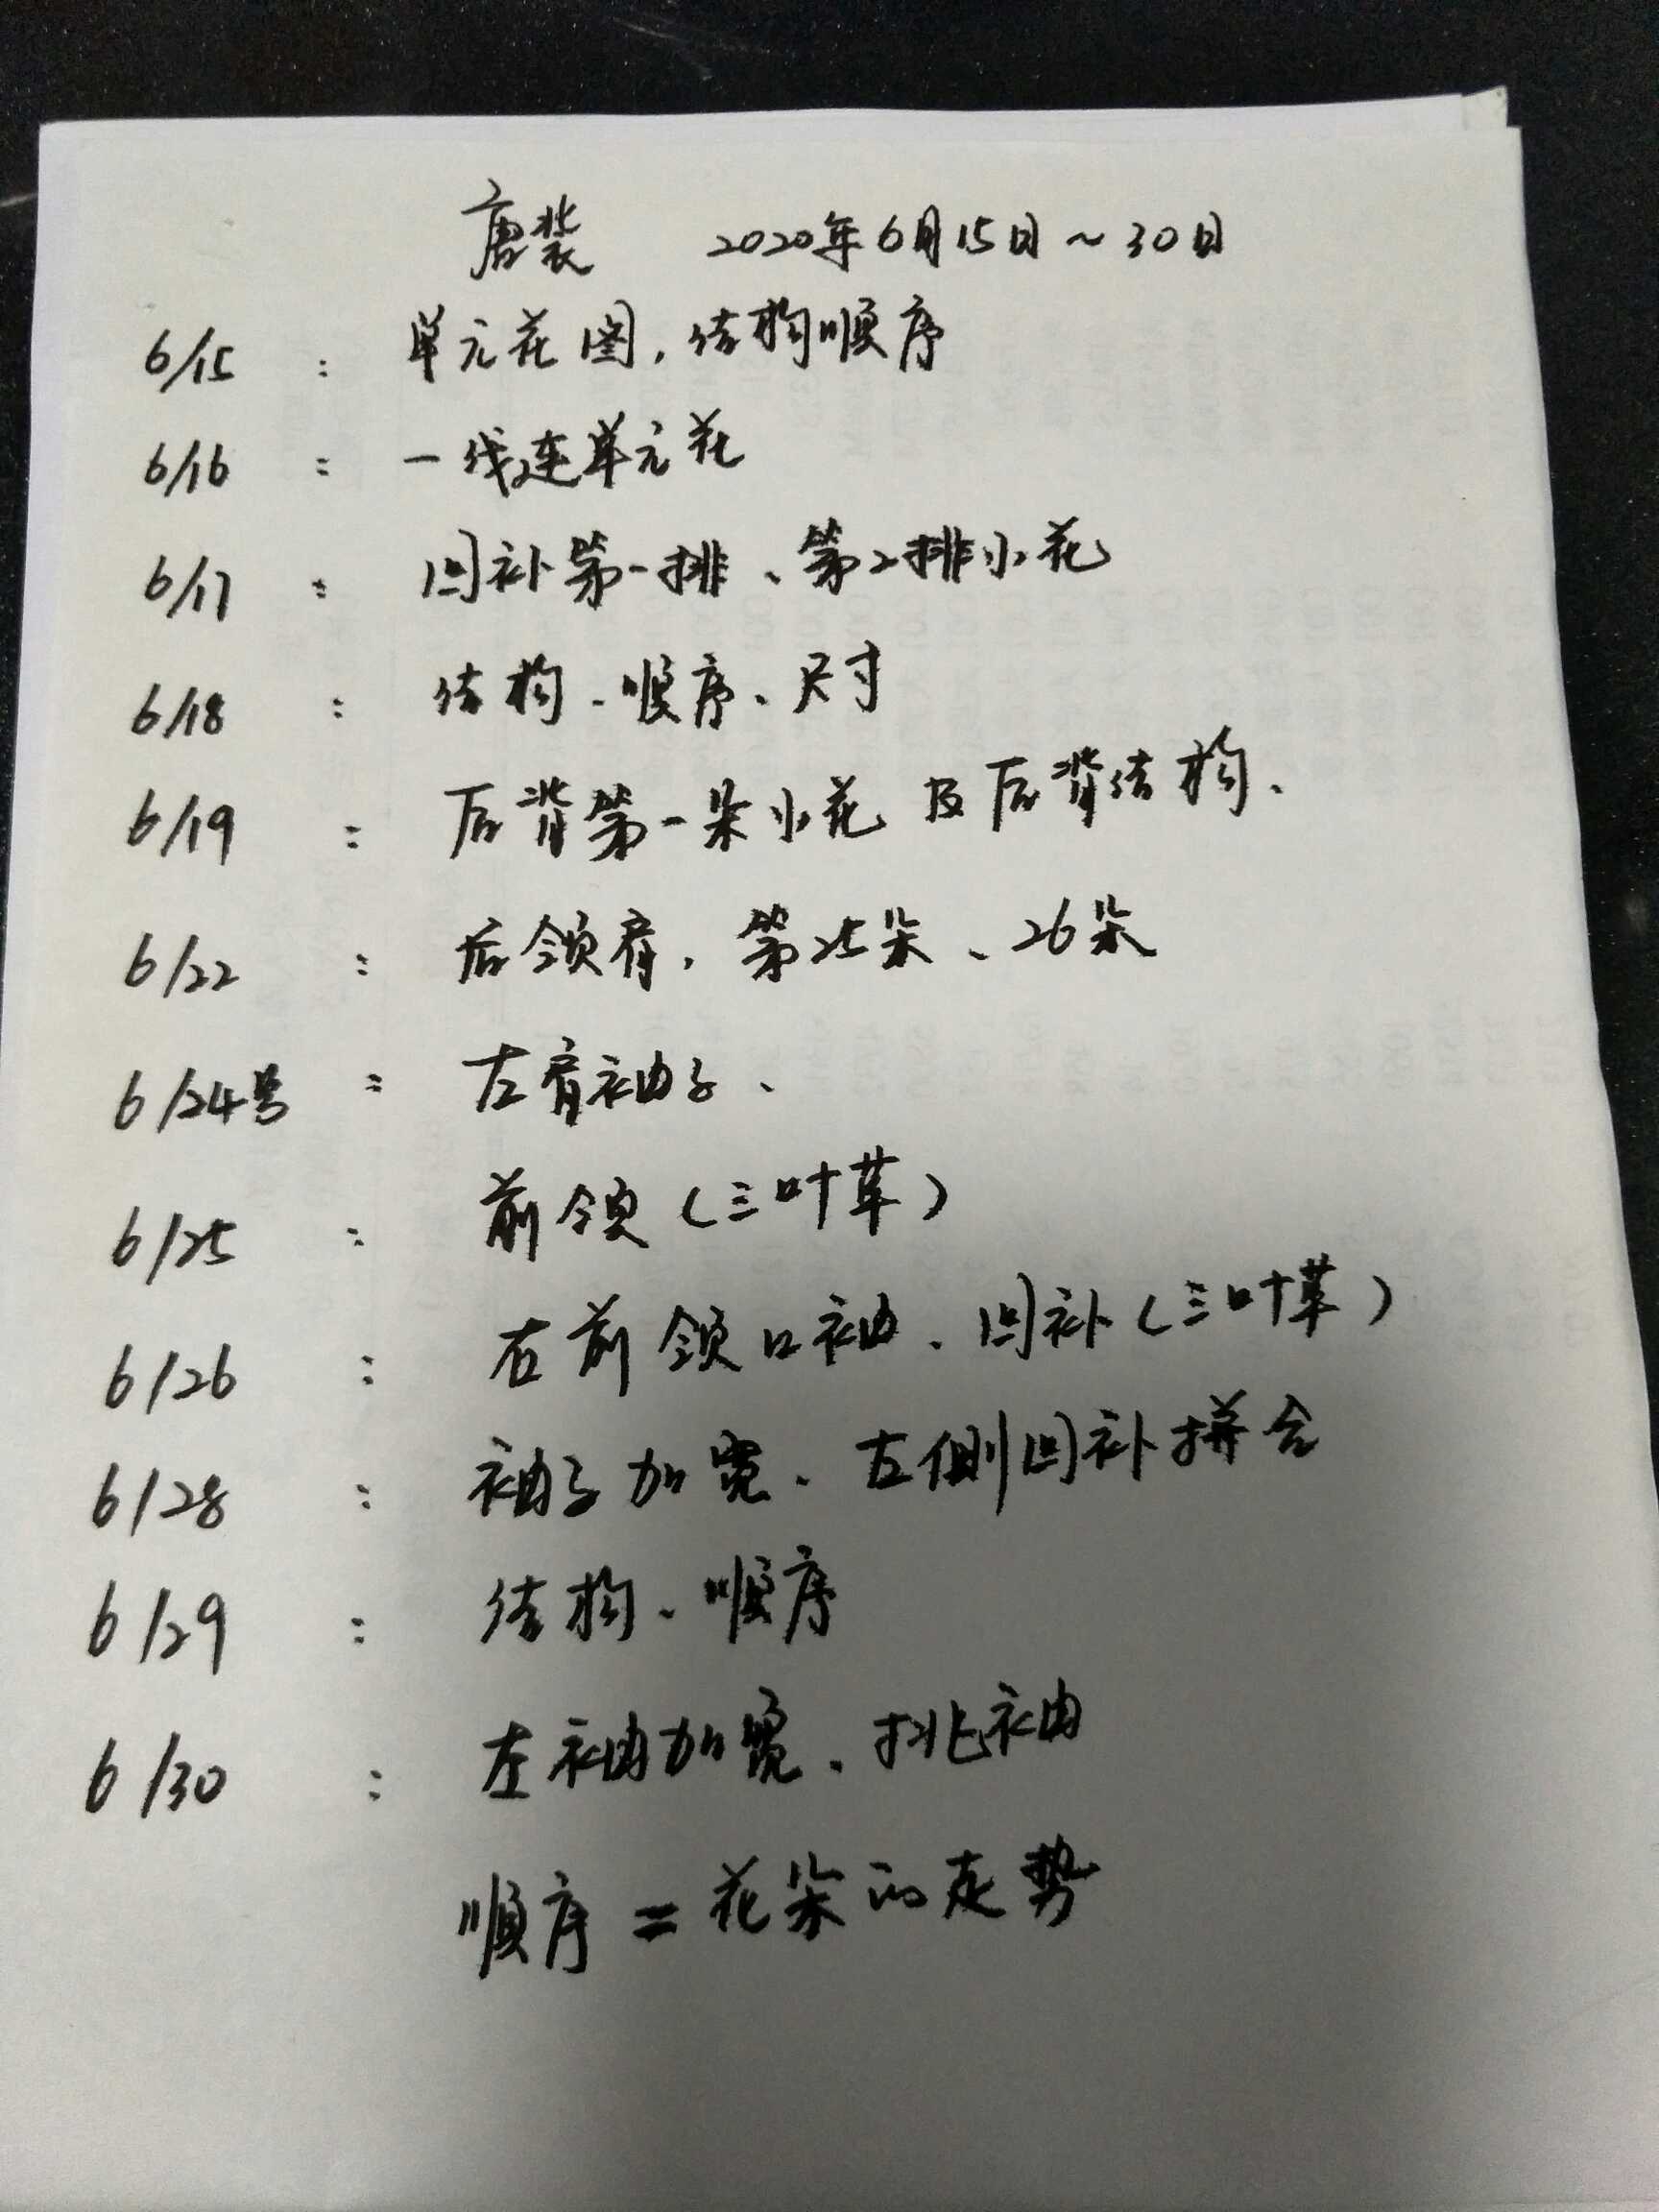 唐装 2020年6月15日~30日
6/15 : 单元花图,结构顺序
6/16 : 一线连单元花
6/17 : 回补第一排、第2排小花
6/18 : 结构、顺序、尺寸
6/19 : 后背第一朵小花及后背结构、
6/22 : 后领肩,第25朵、26朵
6/24号 : 左肩袖子、
6/25 : 前领(三叶草)
6/26 : 右前领口袖、回补(三叶草)
6/28 : 袖子加宽、左侧回补拼合
6/29 : 结构、顺序
6/30 : 左袖加宽、挑袖
顺序=花朵的走势